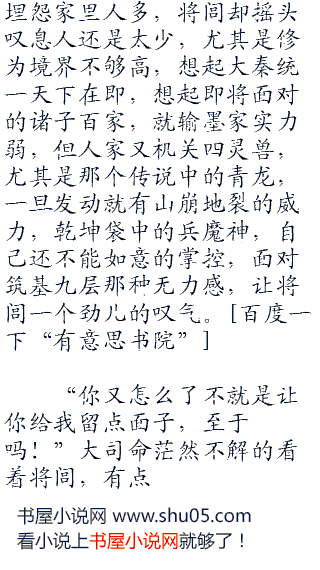 埋怨家里人多，将闾却摇头
叹息人还是太少，尤其是修
为境界不够高，想起大秦统
一天下在即，想起即将面对
的诸子百家，就输墨家实力
弱，但人家又机关四灵兽，
尤其是那个传说中的青龙，
一旦发动就有山崩地裂的威
力，乾坤袋中的兵魔神，自
己还不能如意的掌控，面对
筑基九层那种无力感，让将
闾一个劲儿的叹气。[百度一
下“有意思书院”]
“你又怎么了不就是让
你给我留点面子，至于
吗！”大司命茫然不解的看
着将闾，有点
书屋小说网 www.shu05.com
看小说上书屋小说网就够了！